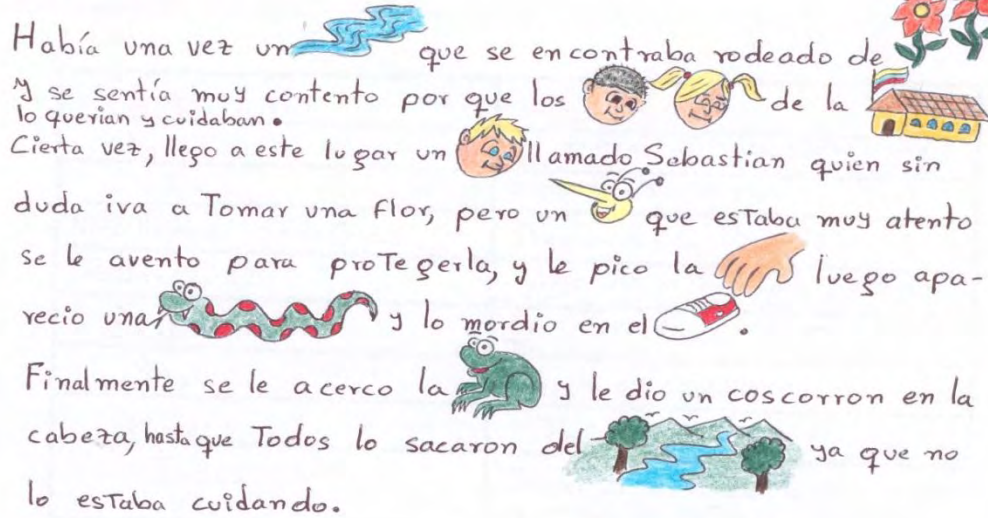 Había una vez un que se encontraba rodeado de
y se sentía muy contento por que los de la
lo querian y cuidaban.
Cierta vez, llego a este lugar un llamado Sebastian quien sin
duda iva a Tomar una flor, pero un que esTaba muy atento
se le avento para proTegerla, y le pico la luego apa-
recio una, y lo mordio en el .
Finalmente se le acerco la y le dio un coscorron en la
cabeza, hasta que Todos lo sacaron del ya que no
lo esTaba cuidando.